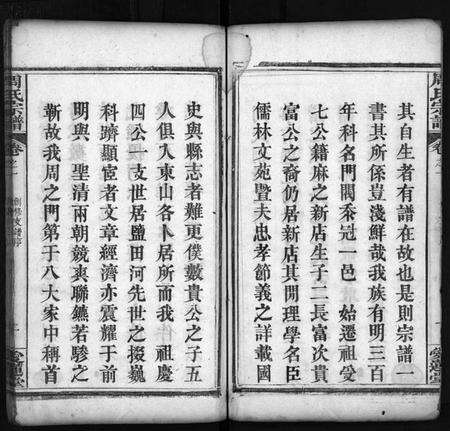 其自生者有譜在故也是則宗譜一
書其所係豈淺鮮哉我族有明三百
年科名門閥忝冠一邑 始遷祖受
七公籍麻之新店生子二長富次貴
富公之裔仍居新店其閒理學名臣
儒林文苑暨夫忠孝節義之詳載國
史與縣志者難更僕數貴公之子五
人俱入東山各卜居所而我 祖慶
四公一支世居鹽田河先世之掇巍
科躋顯宦者文章經濟亦震耀于前
明與 聖清兩朝競爽聯鑣若驂之
靳故我周之門第于八大家中稱首
周氏宗譜
卷之一
周氏宗譜
卷
愛蓮堂